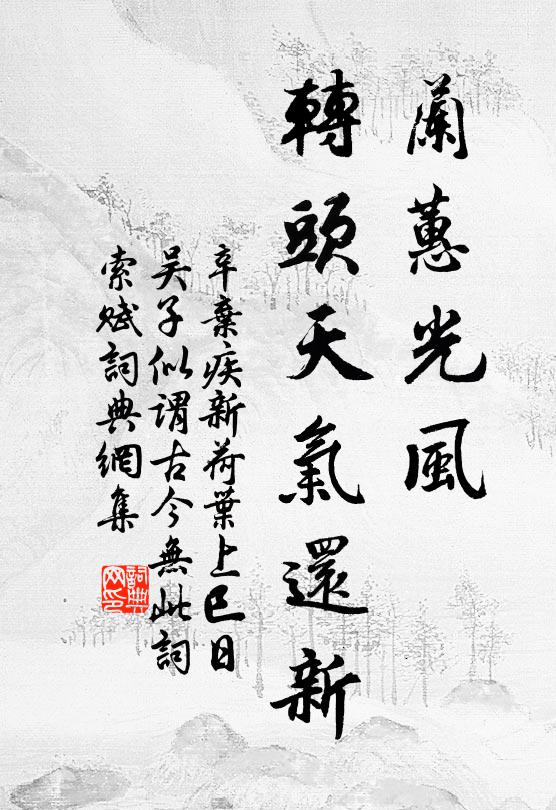 蘭蕙光風
轉頭天氣還新
辛棄疾新荷葉上巳日
吳子似謂古今無此詞
索賦詞典網集
詞典
网印